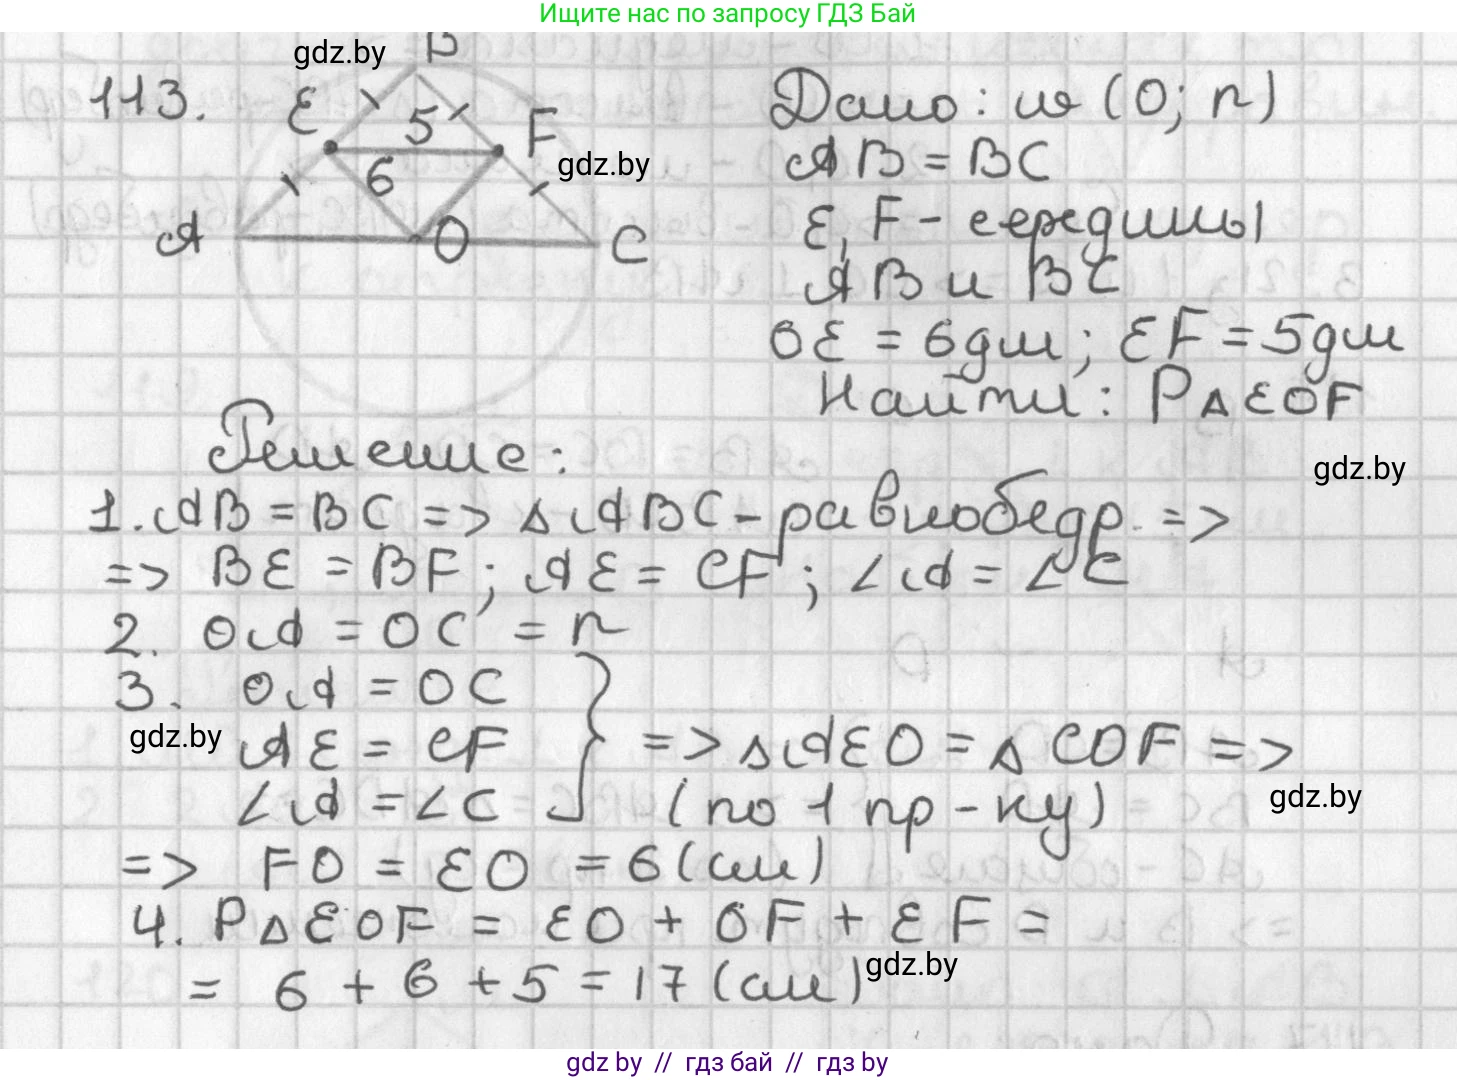 Ищите нас по запросу ГДЗ Бай
gdz.by
113.
B
E
5
F
6
A
O
C
gdz.by
Дано: w (O; r)
AB = BC
E, F - середины
AB и BC
OE = 6дм; EF = 5дм
Найти: P∆EOF
gdz.by
Решение:
1. AB = BC => ∆ABC - равнобедр. =>
=> BE = BF; AE = CF; ∠A = ∠C
2. OA = OC = r
3. OA = OC
gdz.by
AE = CF } => ∆AEO = ∆COF =>
∠A = ∠C (по 1 пр-ку)
gdz.by
=> FO = EO = 6 (см)
4. P∆EOF = EO + OF + EF =
= 6 + 6 + 5 = 17 (см)
gdz.by
gdz by // гдз бай // гдз by